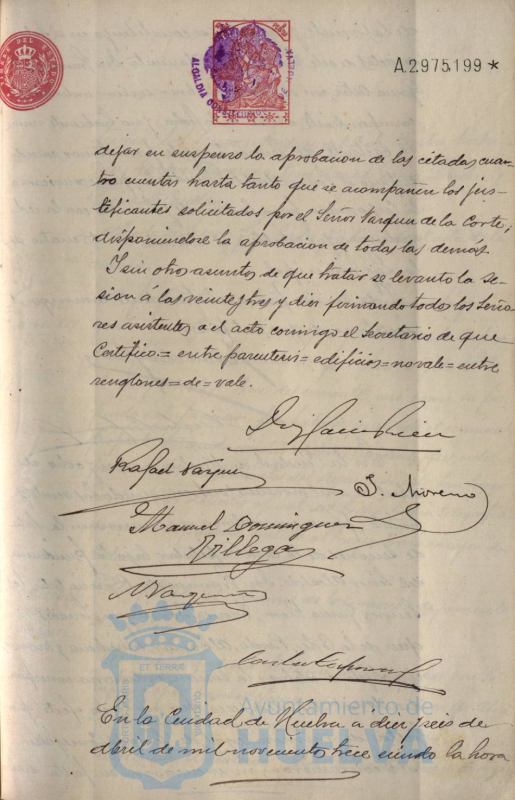 A.2.975.199 *
dejar en suspenso la aprobacion de las citadas cuan-
tro cuentas hasta tanto que se acompañen los jus-
tificantes solicitados por el Señor Vazquez de la Corte;
disponiendose la aprobacion de todas las demás.
I sin otro asuntos de que tratar se levanto la se-
sion á las veintey tres y diez firmando todos los Seño-
res asistentes a el acto conmigo el Secretario de que
Certifico.= entre parentesis= edificios= no vale= entre
renglones= de= vale.
Rafael Vazquez
J. Moreno
Manuel Dominguez
Villega
Vazquez
ET TERRÆ
Ayuntamiento de
HUELVA
En la Ciudad de Huelva a diez y seis de
abril de mil novecientos trece siendo la hora